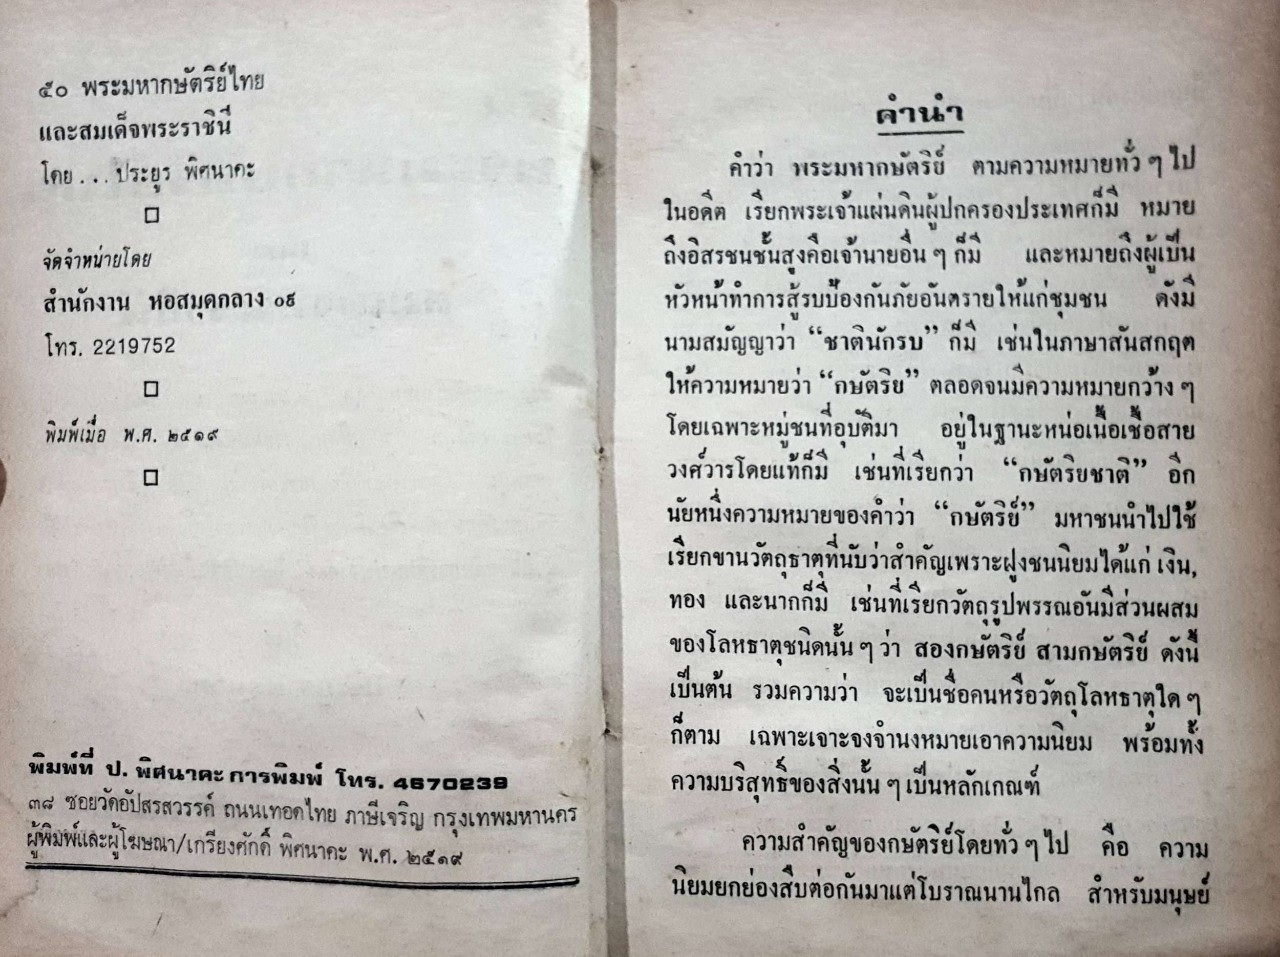 ๕๐ พระมหากษัตริย์ไทย
และสมเด็จพระราชินี
โดย . . . ประยูร พิศนาคะ
จัดจำหน่ายโดย
สำนักงาน หอสมุดกลาง ๐๙
โทร. 2219752
พิมพ์เมื่อ พ.ศ. ๒๕๑๙
พิมพ์ที่ ป. พิศนาคะ การพิมพ์ โทร. 4670239
๓๘ ซอยวัดอัปสรสวรรค์ ถนนเทอดไทย ภาษีเจริญ กรุงเทพมหานคร
ผู้พิมพ์และผู้โฆษณา/เกรียงศักดิ์ พิศนาคะ พ.ศ. ๒๕๑๙
คำนำ
คำว่า พระมหากษัตริย์ ตามความหมายทั่ว ๆ ไป
ในอดีต เรียกพระเจ้าแผ่นดินผู้ปกครองประเทศก็มี หมาย
ถึงอิสรชนชั้นสูงคือเจ้านายอื่น ๆ ก็มี และหมายถึงผู้เป็น
หัวหน้าทำการสู้รบป้องกันภัยอันตรายให้แก่ชุมชน ดังมี
นามสมัญญาว่า “ชาตินักรบ” ก็มี เช่นในภาษาสันสกฤต
ให้ความหมายว่า “กษัตริย” ตลอดจนมีความหมายกว้าง ๆ
โดยเฉพาะหมู่ชนที่อุบัติมา อยู่ในฐานะหน่อเนื้อเชื้อสาย
วงศ์วารโดยแท้ก็มี เช่นที่เรียกว่า “กษัตริยชาติ” อีก
นัยหนึ่งความหมายของคำว่า “กษัตริย์” มหาชนนำไปใช้
เรียกขานวัตถุธาตุที่นับว่าสำคัญเพราะฝูงชนนิยมได้แก่ เงิน,
ทอง และนากก็มี เช่นที่เรียกวัตถุรูปพรรณอันมีส่วนผสม
ของโลหธาตุชนิดนั้น ๆ ว่า สองกษัตริย์ สามกษัตริย์ ดังนี้
เป็นต้น รวมความว่า จะเป็นชื่อคนหรือวัตถุโลหธาตุใด ๆ
ก็ตาม เฉพาะเจาะจงจำนงหมายเอาความนิยม พร้อมทั้ง
ความบริสุทธิ์ของสิ่งนั้น ๆ เป็นหลักเกณฑ์
ความสำคัญของกษัตริย์โดยทั่ว ๆ ไป คือ ความ
นิยมยกย่องสืบต่อกันมาแต่โบราณนานไกล สำหรับมนุษย์